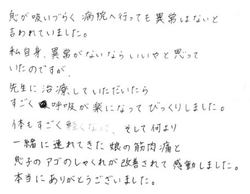 息が吸いづらく病院へ行っても異常はないと
言われていました。
私自身、異常がないならいいやと思って
いたのですが、
先生に治療していただいたら
すごく呼吸が楽になってびっくりしました。
体もすごく軽くなって、そして何より
一緒に連れてきた娘の筋肉痛と
息子のアゴのしゃくれが改善されて感動しました。
本当にありがとうございました。